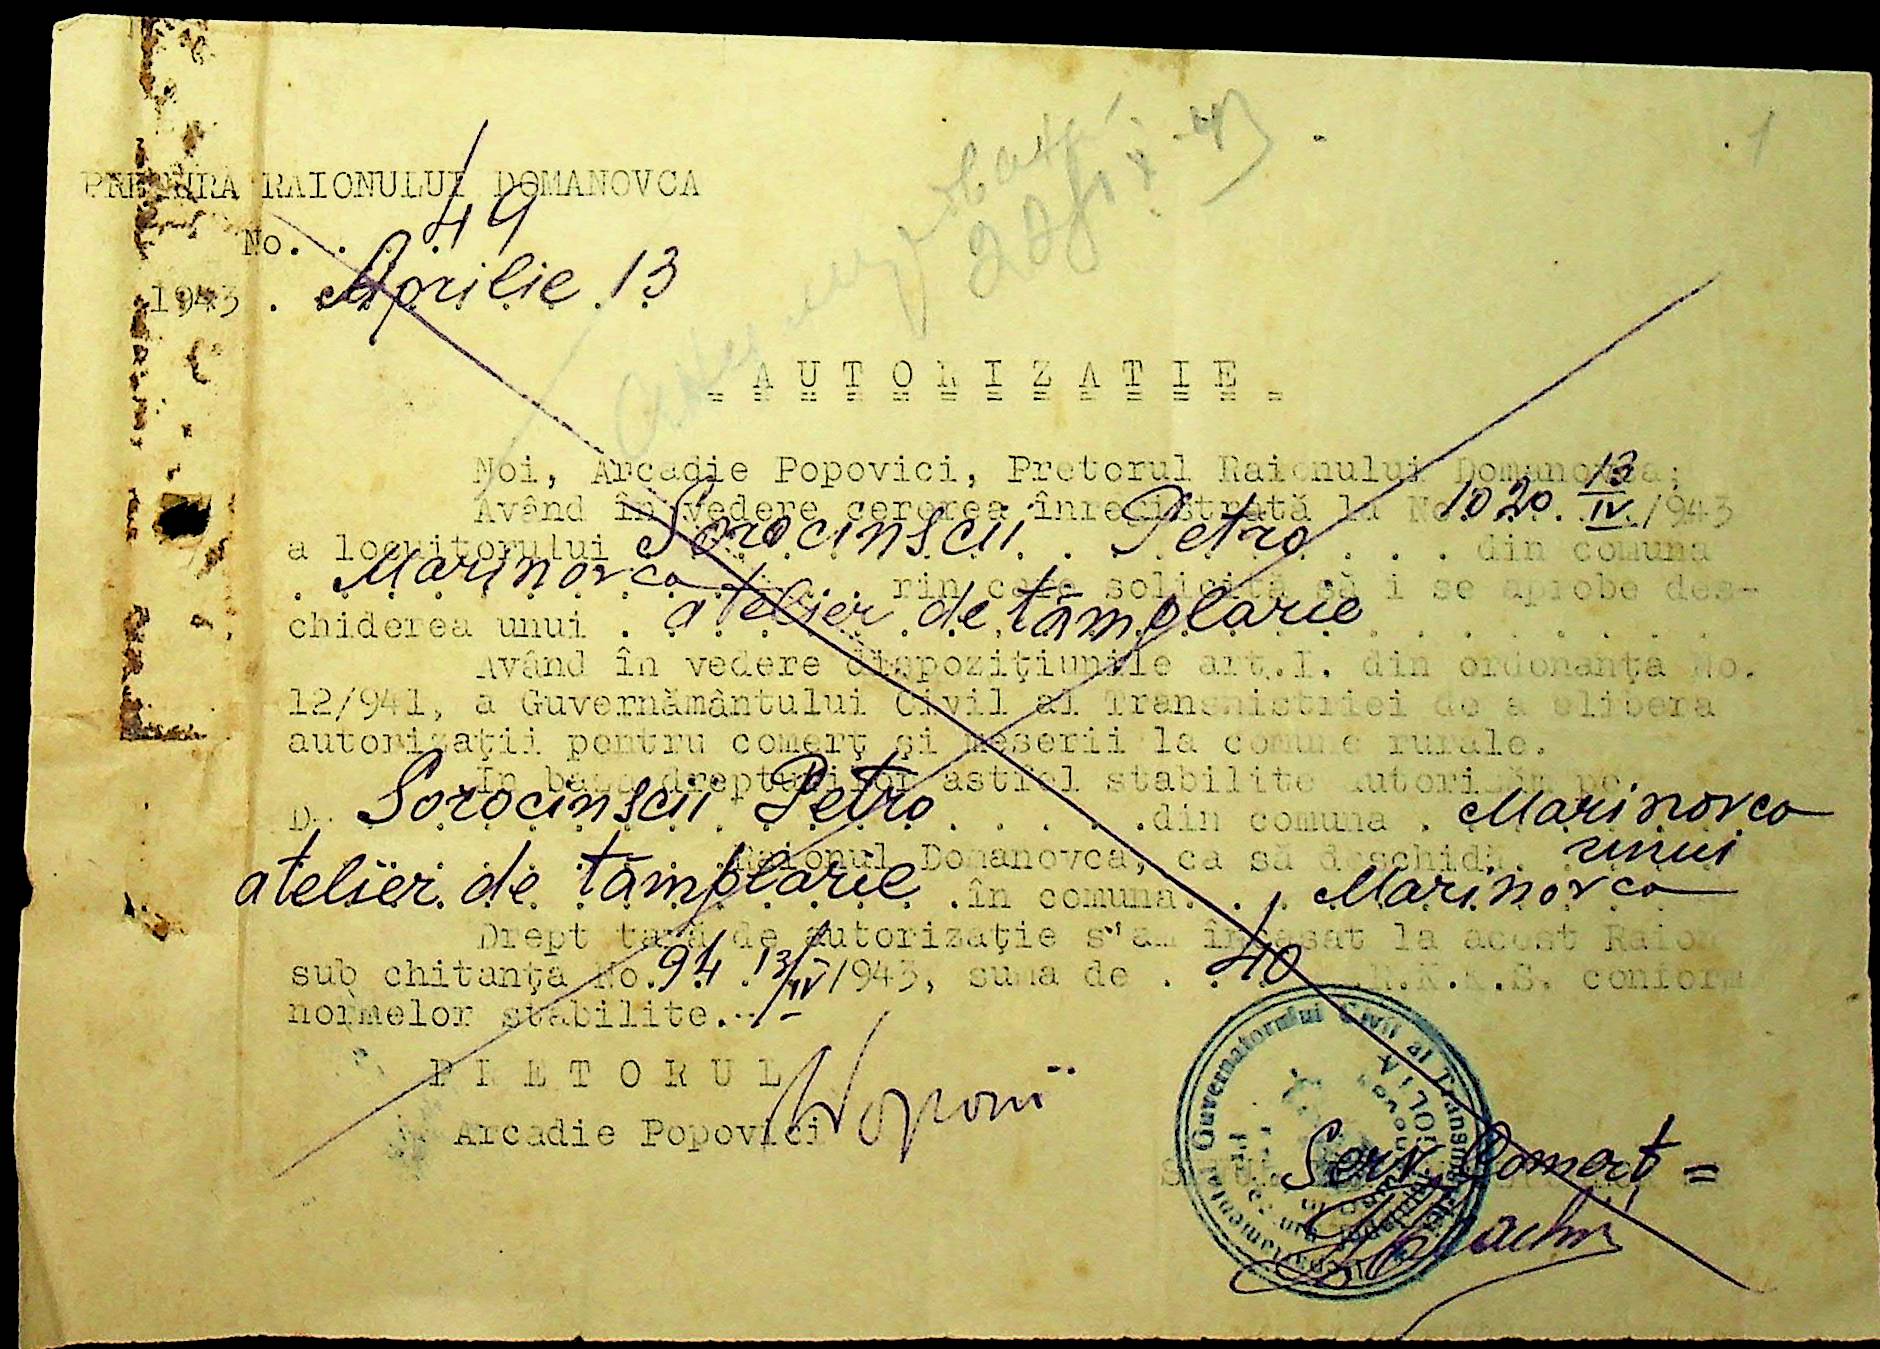 1
PRETURA RAIONULUI DOMANOVCA
No. 49
1943. Aprilie 13
AUTORIZATIE
Noi, Arcadie Popovici, Pretorul Raionului Domanovca;
Având în vedere cererea înregistrată la No 1020. 13/IV./943
a locuitorului Sorocinscii Petro din comuna
Marinovca rin care solicită să i se aprobe des-
chiderea unui atelier de tâmplarie
Având în vedere dispoziţiunile art.I. din ordonanţa No.
12/941, a Guvernământului Civil al Transnistriei de a elibera
autorizaţii pentru comerţ şi meserii la comune rurale.
In baza drepturilor astfel stabilite autorizăm pe
D. Sorocinscii Petro din comuna Marinovca
Raionul Domanovca, ca să deschidă. unui
atelier de tâmplarie în comuna Marinovca
Drept taxă de autorizaţie s'au încasat la acest Raion
sub chitanţa No. 94 13/IV/1943, suma de 40 R.K.K.S. conform
normelor stabilite.-
PRETORUL
Arcadie Popovici
Guvernatorului Civil al Transnistriei
Serv. Comerţ =